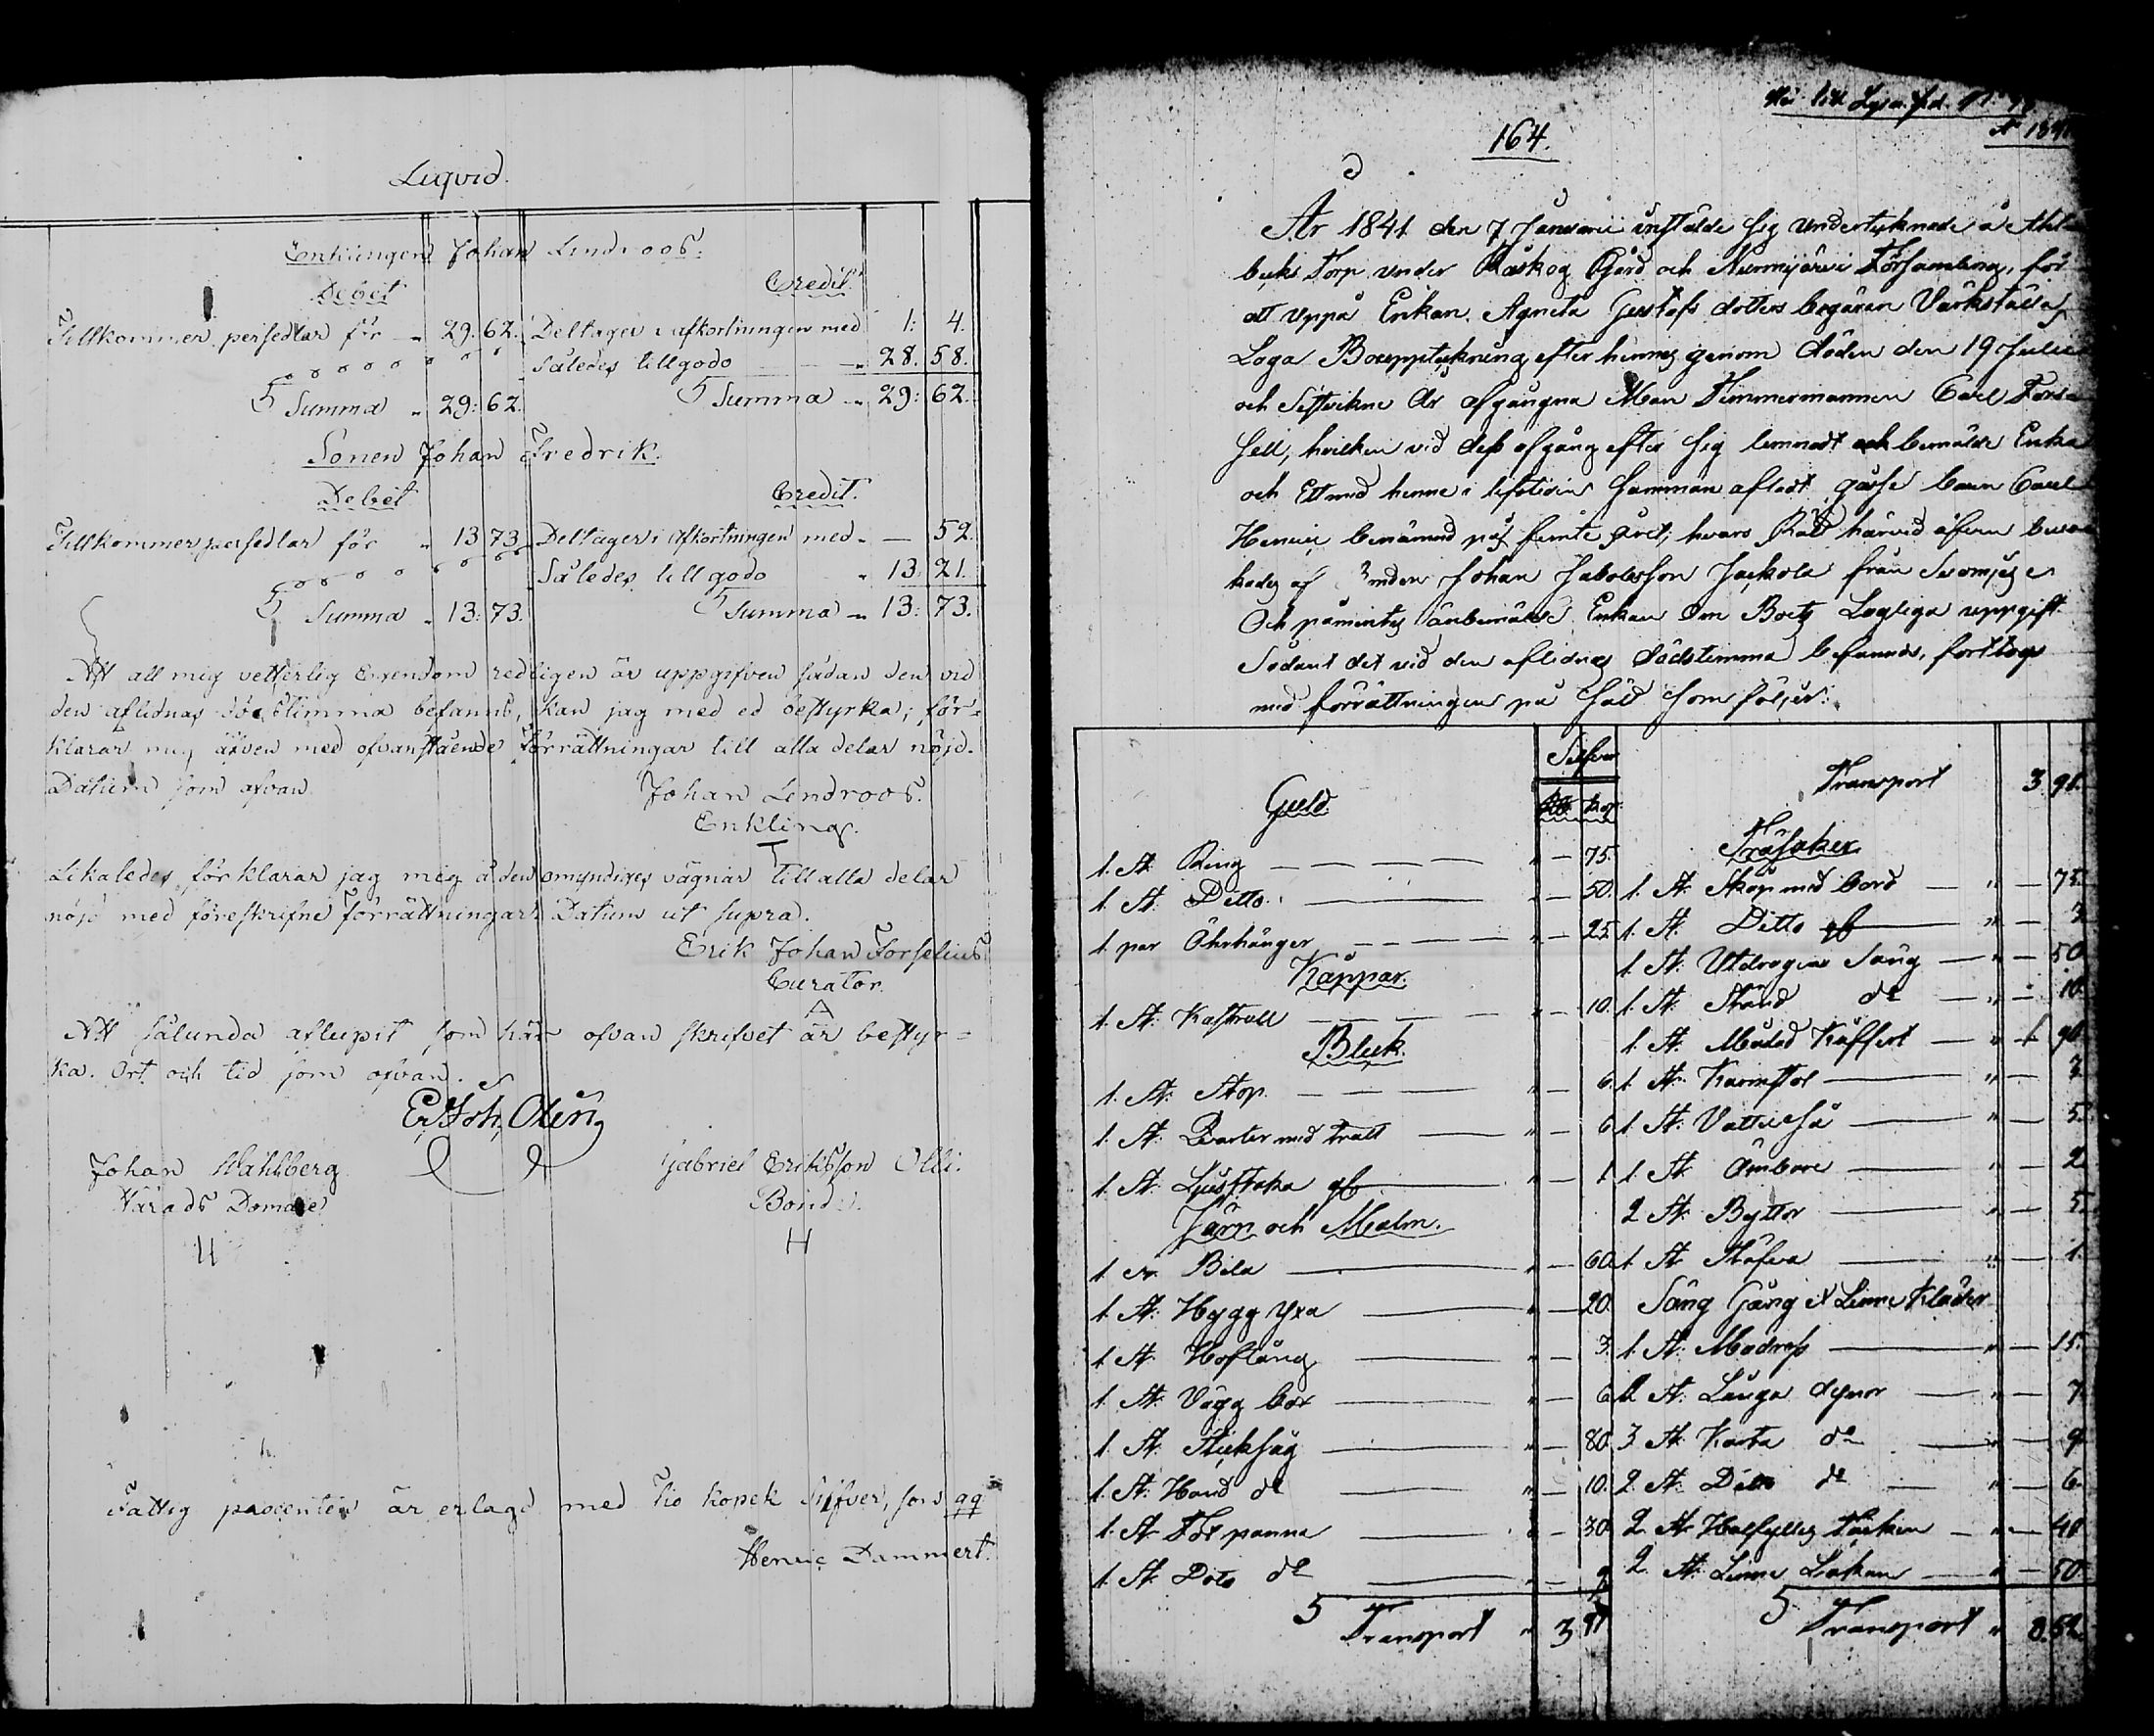 Liqvid.
Enklingen Johan Lindroos.
Debet
Credit.
Tillkommer persedlar för " 29: 62. Deltager i afkortningen med 1: 4.
Således tillgodo " 28. 58.
Summa " 29: 62. Summa " 29: 62.
Sonen Johan Fredrik.
Debet
Credit.
Tillkommer persedlar för " 13 73 Deltager i afkortningen med " — 52.
Således till godo " 13 21.
Summa " 13: 73. Summa " 13: 73.
Att all mig vetterlig Egendom redligen är uppgifven sådan den vid
den aflidnas dödstimma befanns, kan jag med ed bestyrka; för=
klarar mig äfven med ofvanstående förrättningar till alla delar nöjd.
Datum som ofvan
Johan Lindroos.
Enkling.
Likaledes förklarar jag mig å den omyndiges vägnar till alla delar
nöjd med föreskrifne förrättningar Datum ut supra.
Erik Johan Forselius
Curator.
Att sålunda aflupit som här ofvan skrifvet är bestyr=
ka. Ort och tid som ofvan.
Er. Joh. Olin
Johan Wahlberg Gabriel Eriksson Olli.
Härads Domare Bonde.
Fattig procenten är erlagd med Tio kopek Silfver, som qq
Henric Dammert.
164.
År 1841 den 7 Januarii instälde sig Undertecknade å
backs Torp under Råskog Gård och Nurmijärvi Församling, för
att uppå Enkan Agneta Gustafs dotters begäran Värkställa
Laga Bouppteckning efter hennes genom döden den 19 Julii
och Sistvikne År afgångna Man Timmermannen Carl Forss
sell, hvilken vid dess afgång efter sig lemnadt bemälde Enka
och Ett med henne i lifstiden samman afladt gosse barn Carl
Henric benämnd på femte året; hvars Rätt härvid äfven beva
kades af Johan Jakobsson Jackola från
Och påmintes Enkan Om Boets Lagliga uppgift
Sådant det vid den aflidnes dödstimma befanns, forttogs
med förrättningen på sätt som följer:
Silfver
Rub. Kop.
Guld.
1. St. Ring " — 75.
1. St. Ditto " — 50.
1 par Öhrhänger " — 25
Kåppar.
1. St. Kastrull " — 10.
Bleck.
1. St. Stop " — 6.
1. St. Qvarter med tratt " — 6
1. St. Ljusstaka gl " — 1
Järn och Malm.
1. St. Bila " — 60.
1. St. Hygg Yxa " — 20.
1 St. Hoftång " — 3.
1. St. Vägg bor " — 6
1. St. Sticksåg " — 80
1. St. Hand do " — 10.
1. St. Fot panna " — 30
1. St. Dito do " — 9
Transport " 3 91
Transport 3 91.
Träsaker
1. St. Skåp med bord " — 75.
1. St. Ditto gl " — 3
1. St. Utdragen Säng " — 50
1. St. Ständ do " — 10
1. St. Målad Kuffert " 1 90
1. St. Karmstol " — 3
1. St. Vattuså " — 5
1. St. Ämbare " — 2
2 St. Byttor " — 5
1. St. Stäfva " — 1.
Säng Gång et Linne Kläder
1. St. Madrass " — 15.
2 St. Långa dynor " — 7
3 St. Korta do " — 9
2. St. Ditto do " — 6.
2. St. Halfylles Täcken " — 40
2. St. Linne Lakan " — 50
Transport " 8. 52.